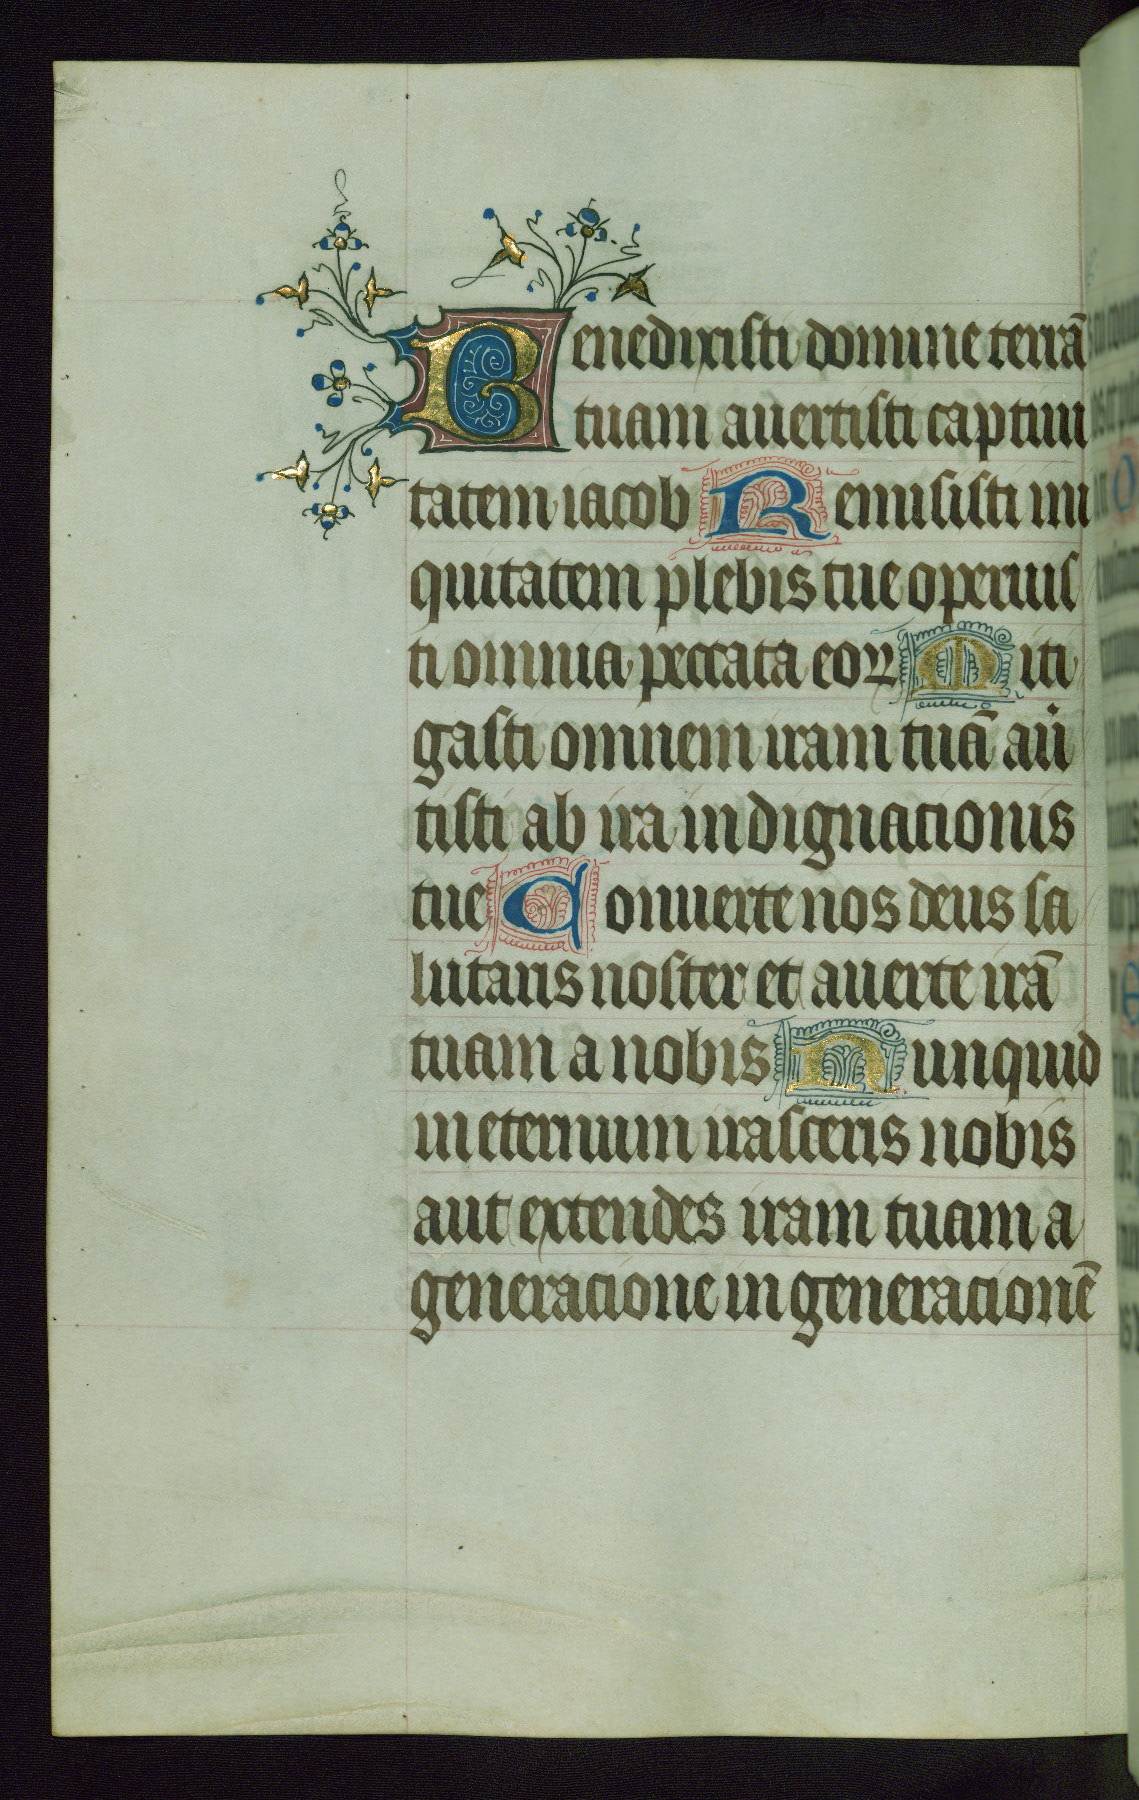 Benedixisti domine terrā
tuam avertisti captivi
tatem iacob Remisisti ini
quitatem plebis tue operuis
ti omnia peccata eoꝝ Miti
gasti omnem iram tuā av̍
tisti ab ira indignationis
tue Converte nos deus sa
lutaris noster et averte irā
tuam a nobis Nunquid
in eternum irasceris nobis
aut extendes iram tuam a
generatione in generationē